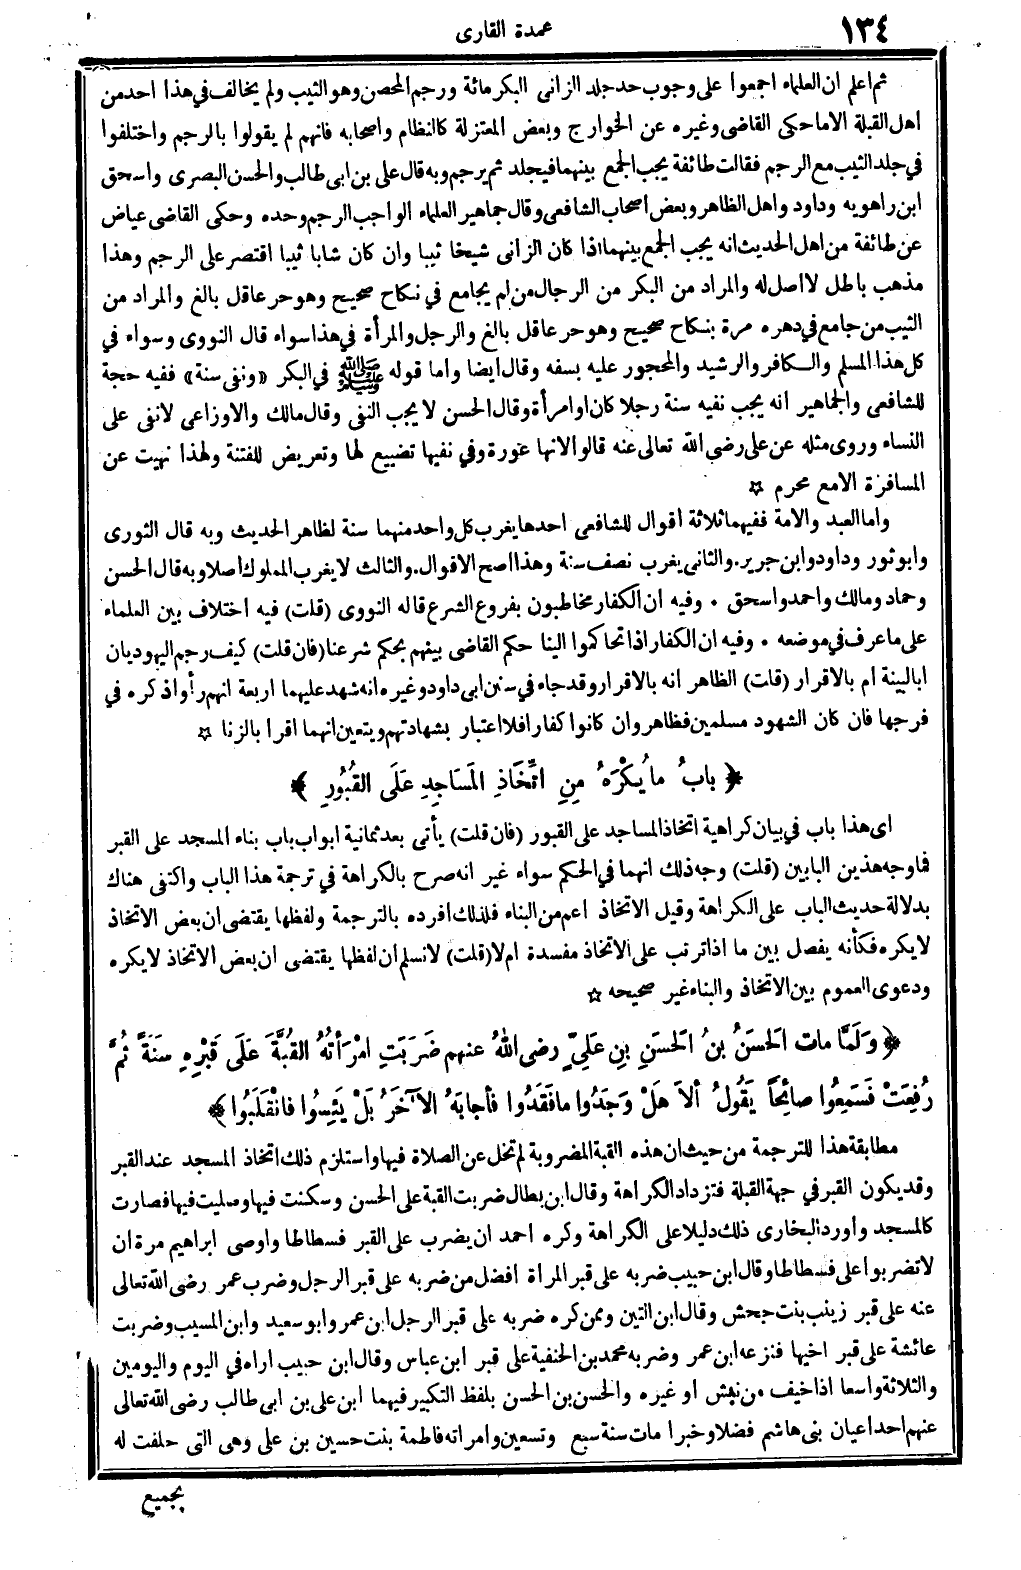 ١٣٤
عمدة القارى
ثم اعلم ان العلماء اجمعوا على وجوب حد جلد الزانى البكر مائة ورجم المحصن وهو الثيب ولم يخالف في هذا احد من
اهل القبلة الا ما حكى القاضى وغيره عن الخوارج وبعض المعتزلة كالنظام واصحابه فانهم لم يقولوا بالرجم واختلفوا
في جلد الثيب مع الرجم فقالت طائفة يجب الجمع بينهما فيجلد ثم يرجم وبه قال على بن ابى طالب والحسن البصرى واسحق
ابن راهويه وداود واهل الظاهر وبعض اصحاب الشافعى وقال جماهير العلماء الواجب الرجم وحده وحكى القاضى عياض
عن طائفة من اهل الحديث انه يجب الجمع بينهما اذا كان الزانى شيخا ثيبا وان كان شابا ثيبا اقتصر على الرجم وهذا
مذهب باطل لا اصل له والمراد من البكر من الرجال من لم يجامع في نكاح صحيح وهو حر عاقل بالغ والمراد من
الثيب من جامع في دهره مرة بنكاح صحيح وهو حر عاقل بالغ والرجل والمرأة في هذا سواء قال النووى وسواء في
كل هذا المسلم والكافر والرشيد والمحجور عليه بسفه وقال ايضا واما قوله ﷺ في البكر «ونفى سنة» ففيه حجة
للشافعى والجماهير انه يجب نفيه سنة رجلا كان او امرأة وقال الحسن لا يجب النفى وقال مالك والاوزاعى لا نفى على
النساء وروى مثله عن على رضي الله تعالى عنه قالوا لانها عورة وفي نفيها تضييع لها وتعريض للفتنة ولهذا نهيت عن
المسافرة الا مع محرم ☆
واما العبد والامة ففيهما ثلاثة اقوال للشافعى احدها يغرب كل واحد منهما سنة لظاهر الحديث وبه قال الثورى
وابو ثور وداود وابن جرير. والثانى يغرب نصف سنة وهذا اصح الاقوال. والثالث لا يغرب المملوك اصلا وبه قال الحسن
وحماد ومالك واحمد واسحق ۰ وفيه ان الكفار مخاطبون بفروع الشرع قاله النووى (قلت) فيه اختلاف بين العلماء
على ما عرف في موضعه ۰ وفيه ان الكفار اذا تحاكموا الينا حكم القاضى بينهم بحكم شرعنا (فان قلت) كيف رجم اليهوديان
ابالبينة ام بالاقرار (قلت) الظاهر انه بالاقرار وقد جاء في سنن ابى داود وغيره انه شهد عليهما اربعة انهم رأوا ذكره في
فرجها فان كان الشهود مسلمين فظاهر وان كانوا كفارا فلا اعتبار بشهادتهم ويتعين انهما اقرا بالزنا ☆
﴿ بابُ ما يُكْرَهُ مِنِ اتِّخَاذِ المَسَاجِدِ عَلَى القُبُورِ ﴾
اى هذا باب في بيان كراهية اتخاذ المساجد على القبور (فان قلت) يأتى بعد ثمانية ابواب باب بناء المسجد على القبر
فما وجه هذين البابين (قلت) وجه ذلك انهما في الحكم سواء غير انه صرح بالكراهة في ترجمة هذا الباب واكتفى هناك
بدلالة حديث الباب على الكراهة وقيل الاتخاذ اعم من البناء فلذلك افرده بالترجمة ولفظها يقتضى ان بعض الاتخاذ
لا يكره فكأنه يفصل بين ما اذا ترتب على الاتخاذ مفسدة ام لا (قلت) لا نسلم ان لفظها يقتضى ان بعض الاتخاذ لا يكره
ودعوى العموم بين الاتخاذ والبناء غير صحيحه ☆
﴿ وَلَمَّا مات الحَسَنُ بنُ الحَسَنِ بنِ عَلِيٍّ رضى اللهُ عنهم ضَرَبَتِ امْرَأَتُهُ القُبَّةَ عَلَى قَبْرِهِ سَنَةً ثُمَّ
رُفِعَتْ فَسَمِعُوا صائِحاً يَقُولُ ألاَ هَلْ وَجَدُوا ما فَقَدُوا فأجابَهُ الآخَرُ بَلْ يَئِسُوا فانْقَلَبُوا ﴾
مطابقة هذا للترجمة من حيث ان هذه القبة المضروبة لم تخل عن الصلاة فيها واستلزم ذلك اتخاذ المسجد عند القبر
وقد يكون القبر في جهة القبلة فتزداد الكراهة وقال ابن بطال ضربت القبة على الحسن وسكنت فيها وصليت فيها فصارت
كالمسجد وأورد البخارى ذلك دليلا على الكراهة وكره احمد ان يضرب على القبر فسطاطا واوصى ابراهيم مرة ان
لا تضربوا على فسطاطا وقال ابن حبيب ضربه على قبر المرأة افضل من ضربه على قبر الرجل وضرب عمر رضى الله تعالى
عنه على قبر زينب بنت جحش وقال ابن التين وممن كره ضربه على قبر الرجل ابن عمر وابو سعيد وابن المسيب وضربت
عائشة على قبر اخيها فنزعه ابن عمر وضربه محمد بن الحنفية على قبر ابن عباس وقال ابن حبيب اراه في اليوم واليومين
والثلاثة واسعا اذا خيف من نبش او غيره والحسن بن الحسن بلفظ التكبير فيهما ابن على بن ابى طالب رضى الله تعالى
عنهم احد اعيان بنى هاشم فضلا وخيرا مات سنة سبع وتسعين وامراته فاطمة بنت حسين بن على وهى التى حلفت له
بجميع